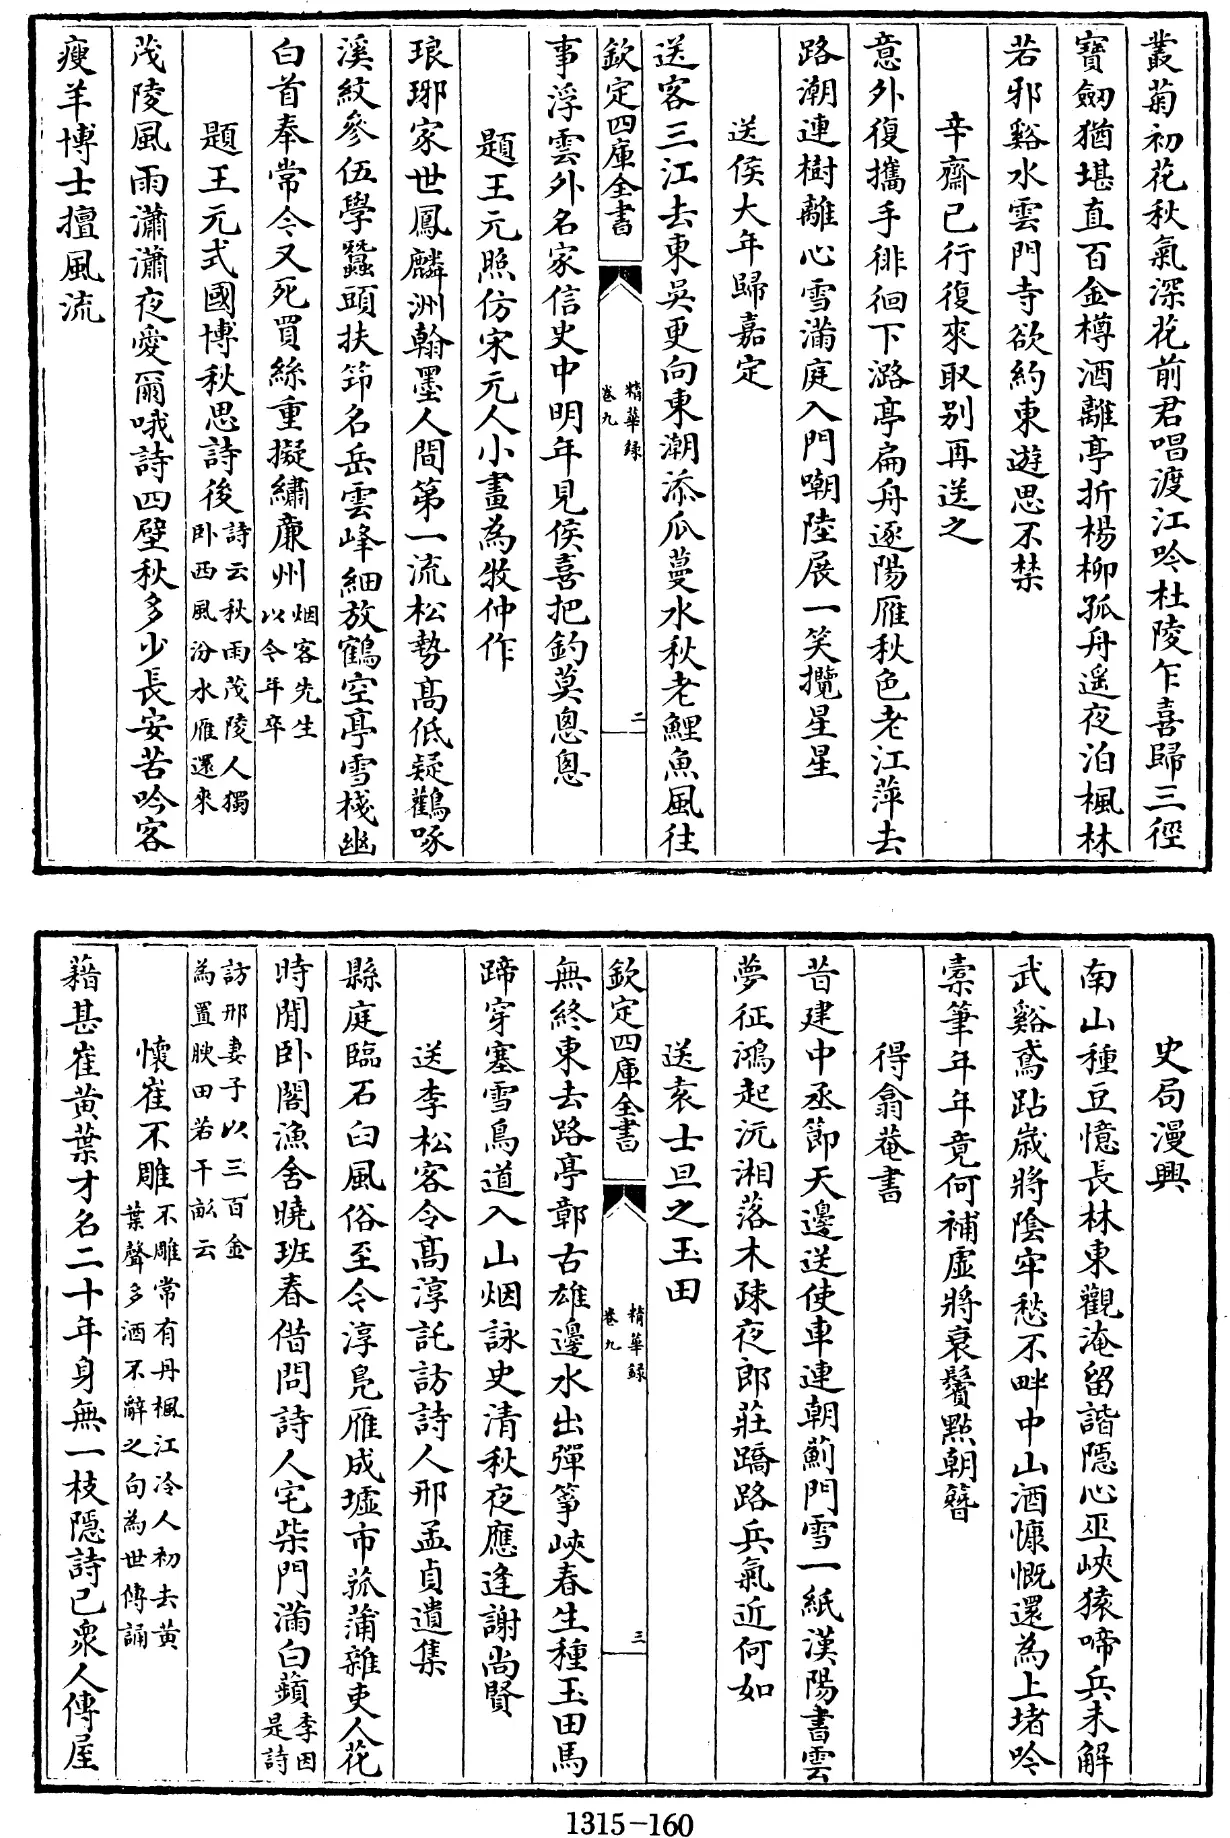 叢菊初花秋氣深花前君唱渡江吟杜陵乍喜歸三徑
寶劒猶堪直百金樽酒離亭折楊柳孤舟遥夜泊楓林
若邪谿水雲門寺欲約東遊思不禁
辛齋已行復來取别再送之
意外復攜手徘徊下潞亭扁舟逐陽雁秋色老江萍去
路潮連樹離心雪滿庭入門嘲陸展一笑攬星星
送侯大年歸嘉定
送客三江去東吳更向東潮添瓜蔓水秋老鯉魚風往
欽定四庫全書
精華録
卷九
二
事浮雲外名家信史中明年見侯喜把釣莫怱怱
題王元照仿宋元人小畫為牧仲作
琅琊家世鳳麟洲翰墨人間第一流松勢髙低疑鸛啄
溪紋參伍學蠶頭扶笻名岳雲峰細放鶴空亭雪棧幽
白首奉常今又死買絲重擬繡廉州
烟客先生
以今年卒
題王元式國博秋思詩後
詩云秋雨茂陵人獨
卧西風汾水雁還來
茂陵風雨瀟瀟夜愛爾哦詩四壁秋多少長安苦吟客
瘦羊博士擅風流
史局漫興
南山種豆憶長林東觀淹留諧隱心巫峽猿啼兵未解
武谿鳶跕歳將陰牢愁不畔中山酒慷慨還為上堵吟
槖筆年年竟何補虚將衰鬢點朝簪
得翕菴書
昔建中丞節天邊送使車連朝薊門雪一紙漢陽書雲
夢征鴻起沅湘落木疎夜郎莊蹻路兵氣近何如
送袁士旦之玉田
欽定四庫全書
精華録
卷九
三
無終東去路亭鄣古雄邊水出彈筝峽春生種玉田馬
蹄穿塞雪鳥道入山烟詠史清秋夜應逢謝尚賢
送李松客令髙淳託訪詩人邢孟貞遺集
縣庭臨石臼風俗至今淳鳬雁成墟市菰蒲雜吏人花
時閒卧閤漁舍曉班春借問詩人宅柴門滿白蘋
李因
是詩
訪邢妻子以三百金
為置腴田若干畝云
懐崔不雕
不雕常有丹楓江冷人初去黄
葉聲多酒不辭之句為世傳誦
藉甚崔黄葉才名二十年身無一枝隱詩已衆人傳屋
1315-160